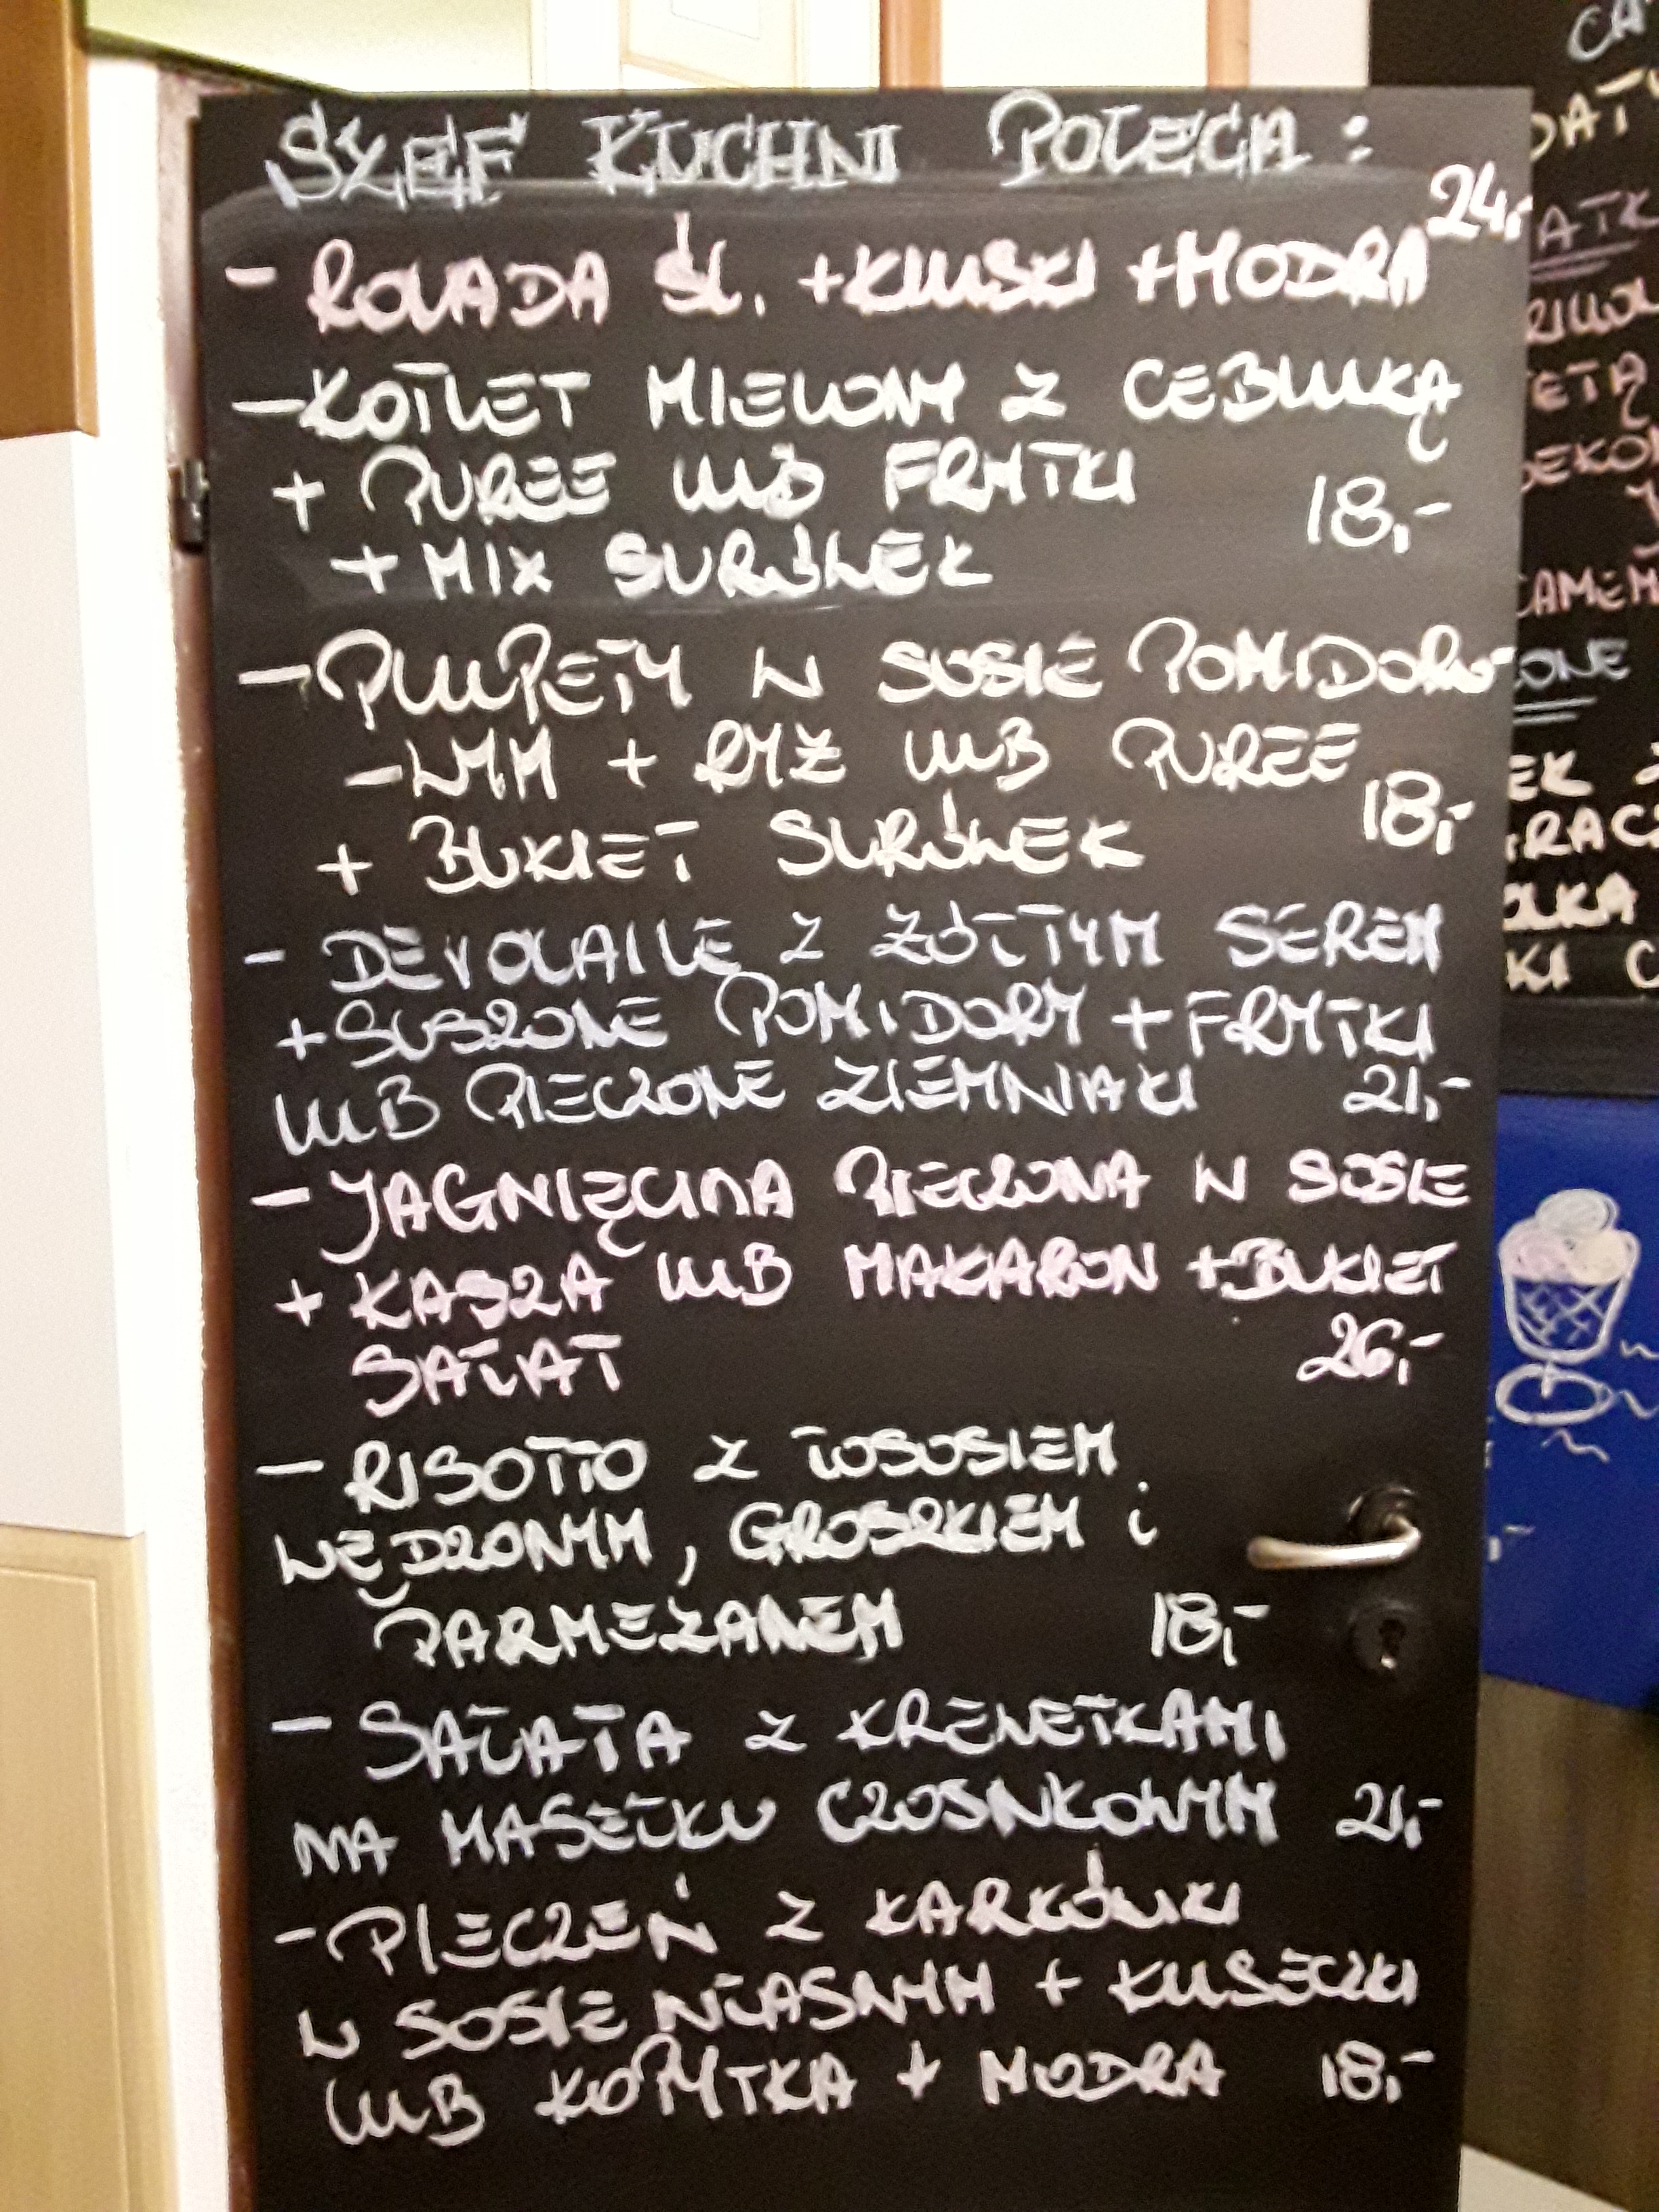 SZEF KUCHNI POLECA:
- ROLADA ŚL. + KLUSKI + MODRA 24,-
- KOTLET MIELONY Z CEBULKĄ
+ PUREE LUB FRYTKI 18,-
+ MIX SURÓWEK
- PULPETY W SOSIE POMIDORO-
-WYM + RYŻ LUB PUREE
+ BUKIET SURÓWEK 18,-
- DEVOLAILE Z ŻÓŁTYM SEREM
+ SUSZONE POMIDORY + FRYTKI
LUB PIECZONE ZIEMNIAKI 21,-
- JAGNIĘCINA PIECZONA W SOSIE
+ KASZA LUB MAKARON + BUKIET
SAŁAT 26,-
- RISOTTO Z ŁOSOSIEM
WĘDZONYM, GROSZKIEM i
PARMEZANEM 18,-
- SAŁATA Z KREWETKAMI
NA MASEŁKU CZOSNKOWYM 21,-
- PIECZEŃ Z KARKÓWKI
W SOSIE WŁASNYM + KLUSECZKI
LUB KOPYTKA + MODRA 18,-